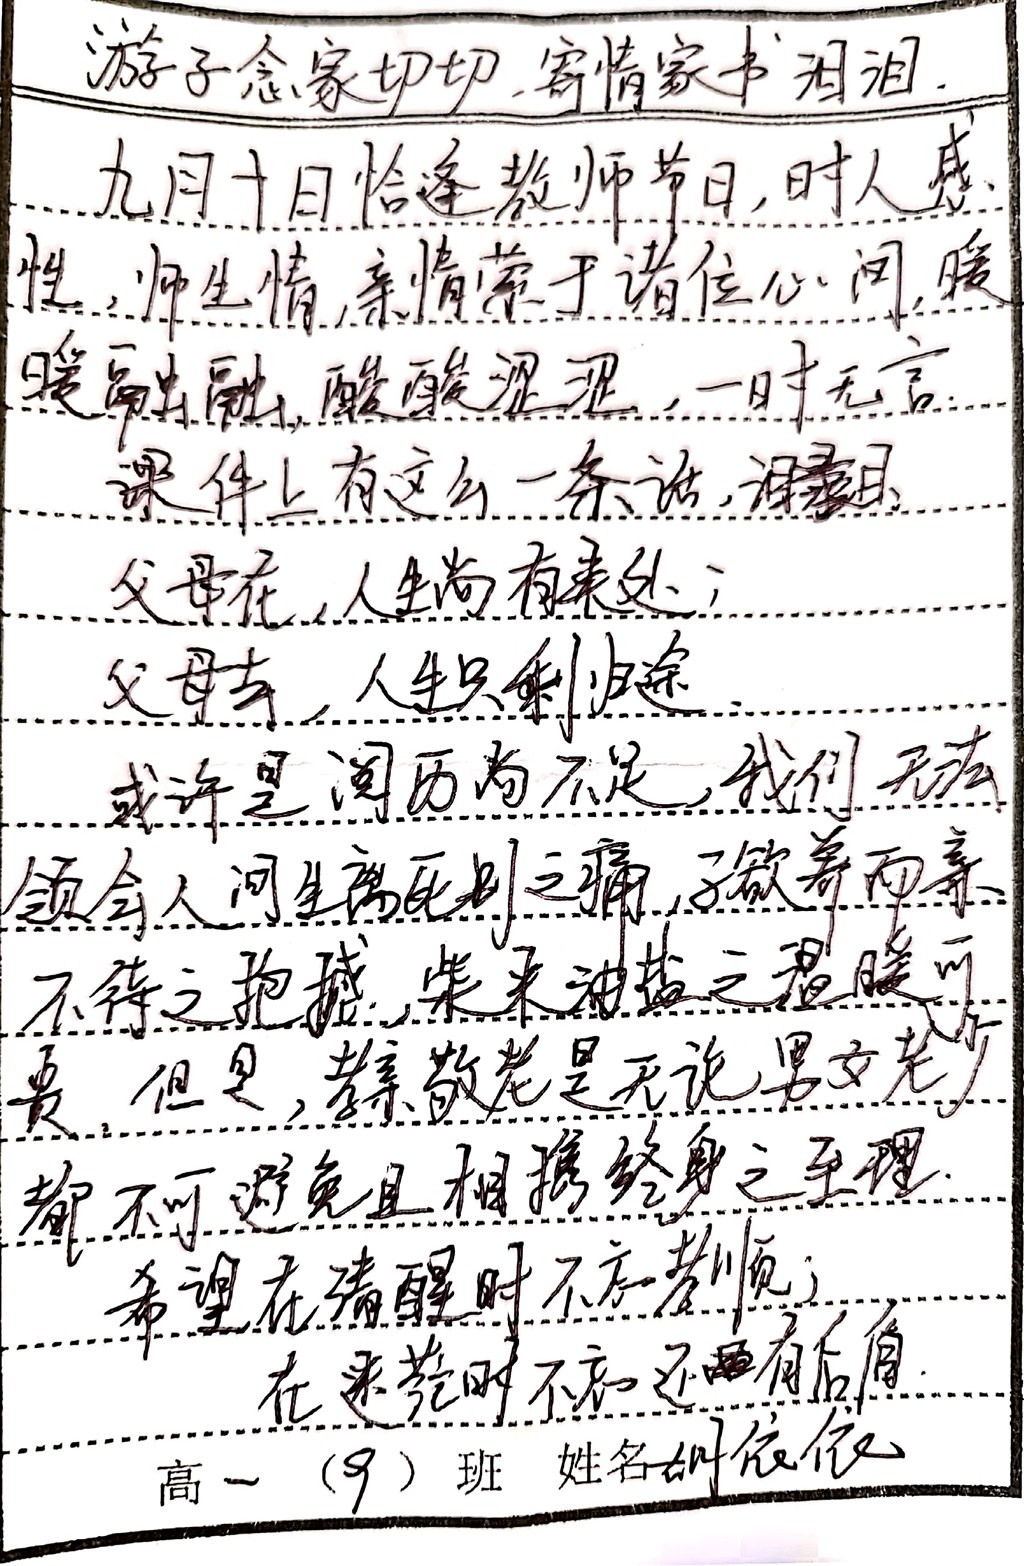 游子念家切切,寄情家书泪泪.
九月十日恰逢教师节日,时人感
性,师生情,亲情萦于诸位心间,暖
暖融融,酸酸涩涩,一时无言.
课件上有这么一条话,泪目.
父母在,人生尚有来处;
父母去,人生只剩归途.
或许是阅历尚不足,我们无法
领会人间生离死别之痛,子欲养而亲
不待之抱憾,柴米油盐之温暖可
贵.但是,孝亲敬老是无论男女老少
都不可避免且相携终身之至理.
希望在清醒时不忘孝顺;
在迷茫时不忘还有后盾.
高一(9)班 姓名胡依依